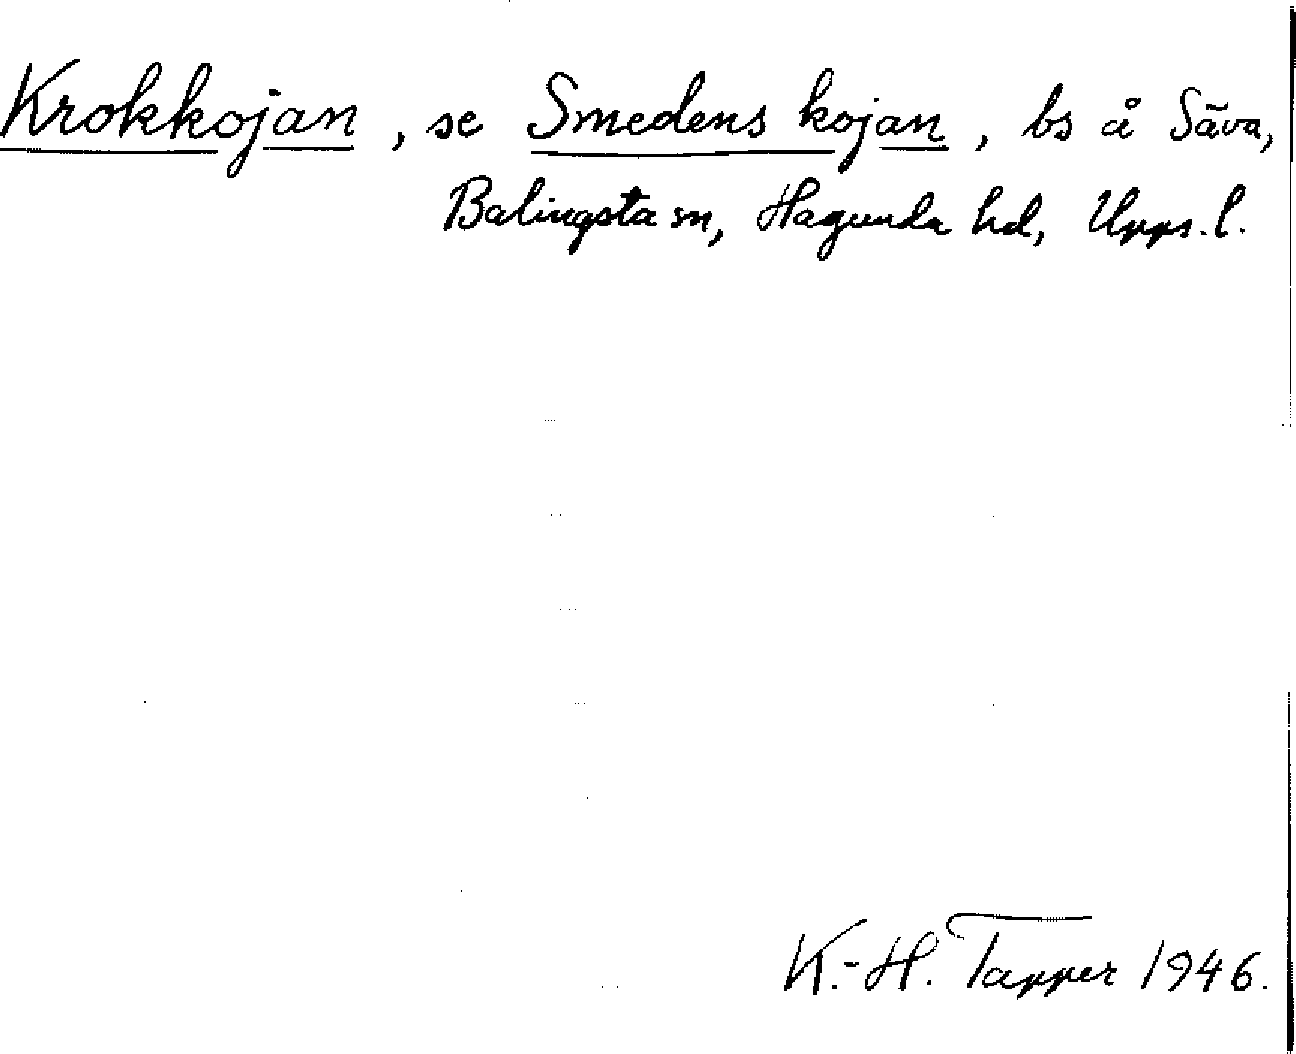 Krokkojan, se Smedens kojan, bs å Säva,
Balingsta sn, Hagunda hd, Upps. l.
K.-H. Tapper 1946.